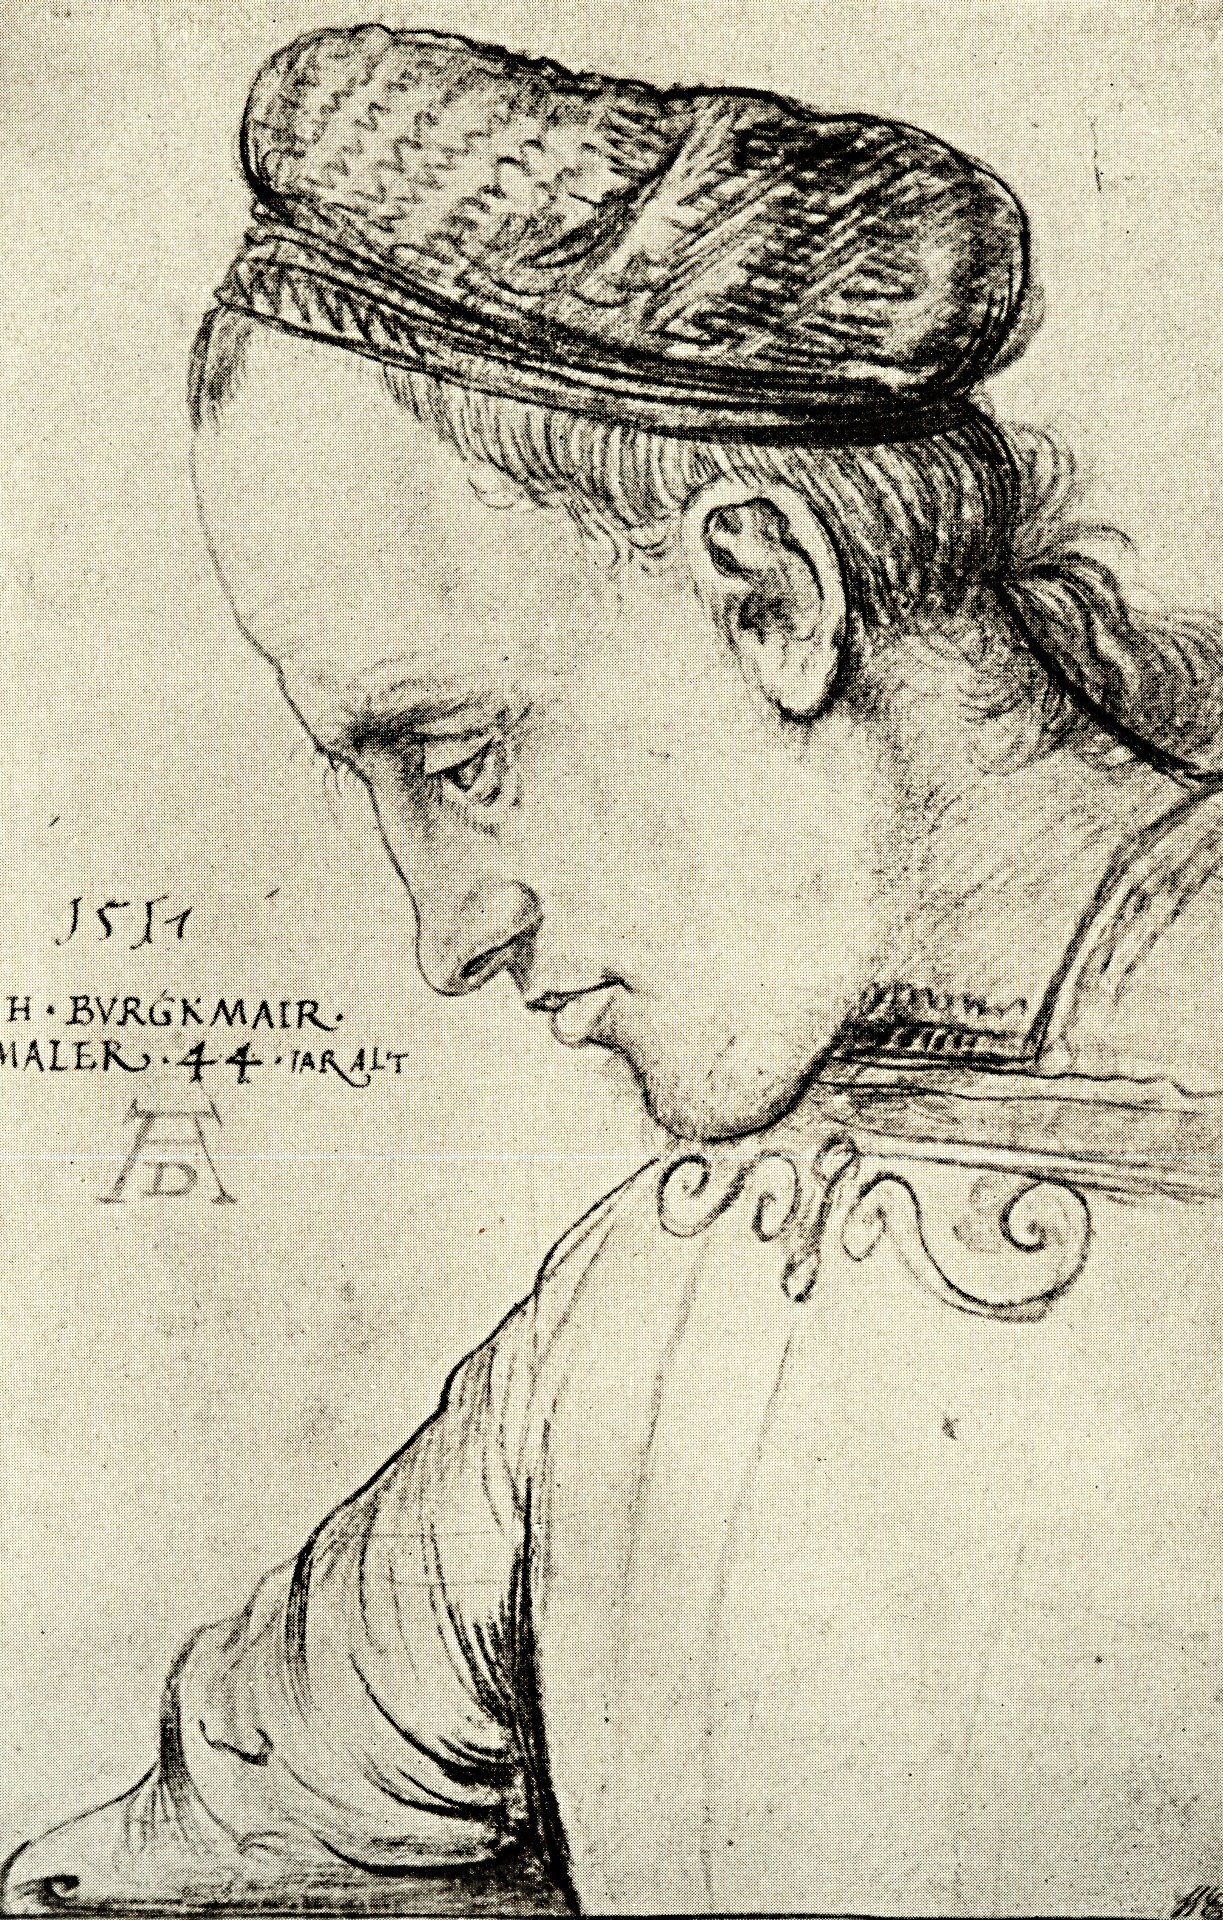 1517
H · BVRGKMAIR.
MALER · 44 · IAR ALT
AD